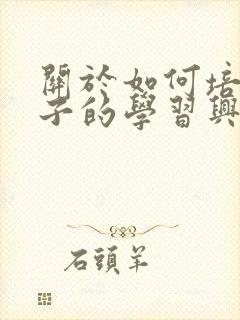 關於如何培
子的學習興
石頭羊